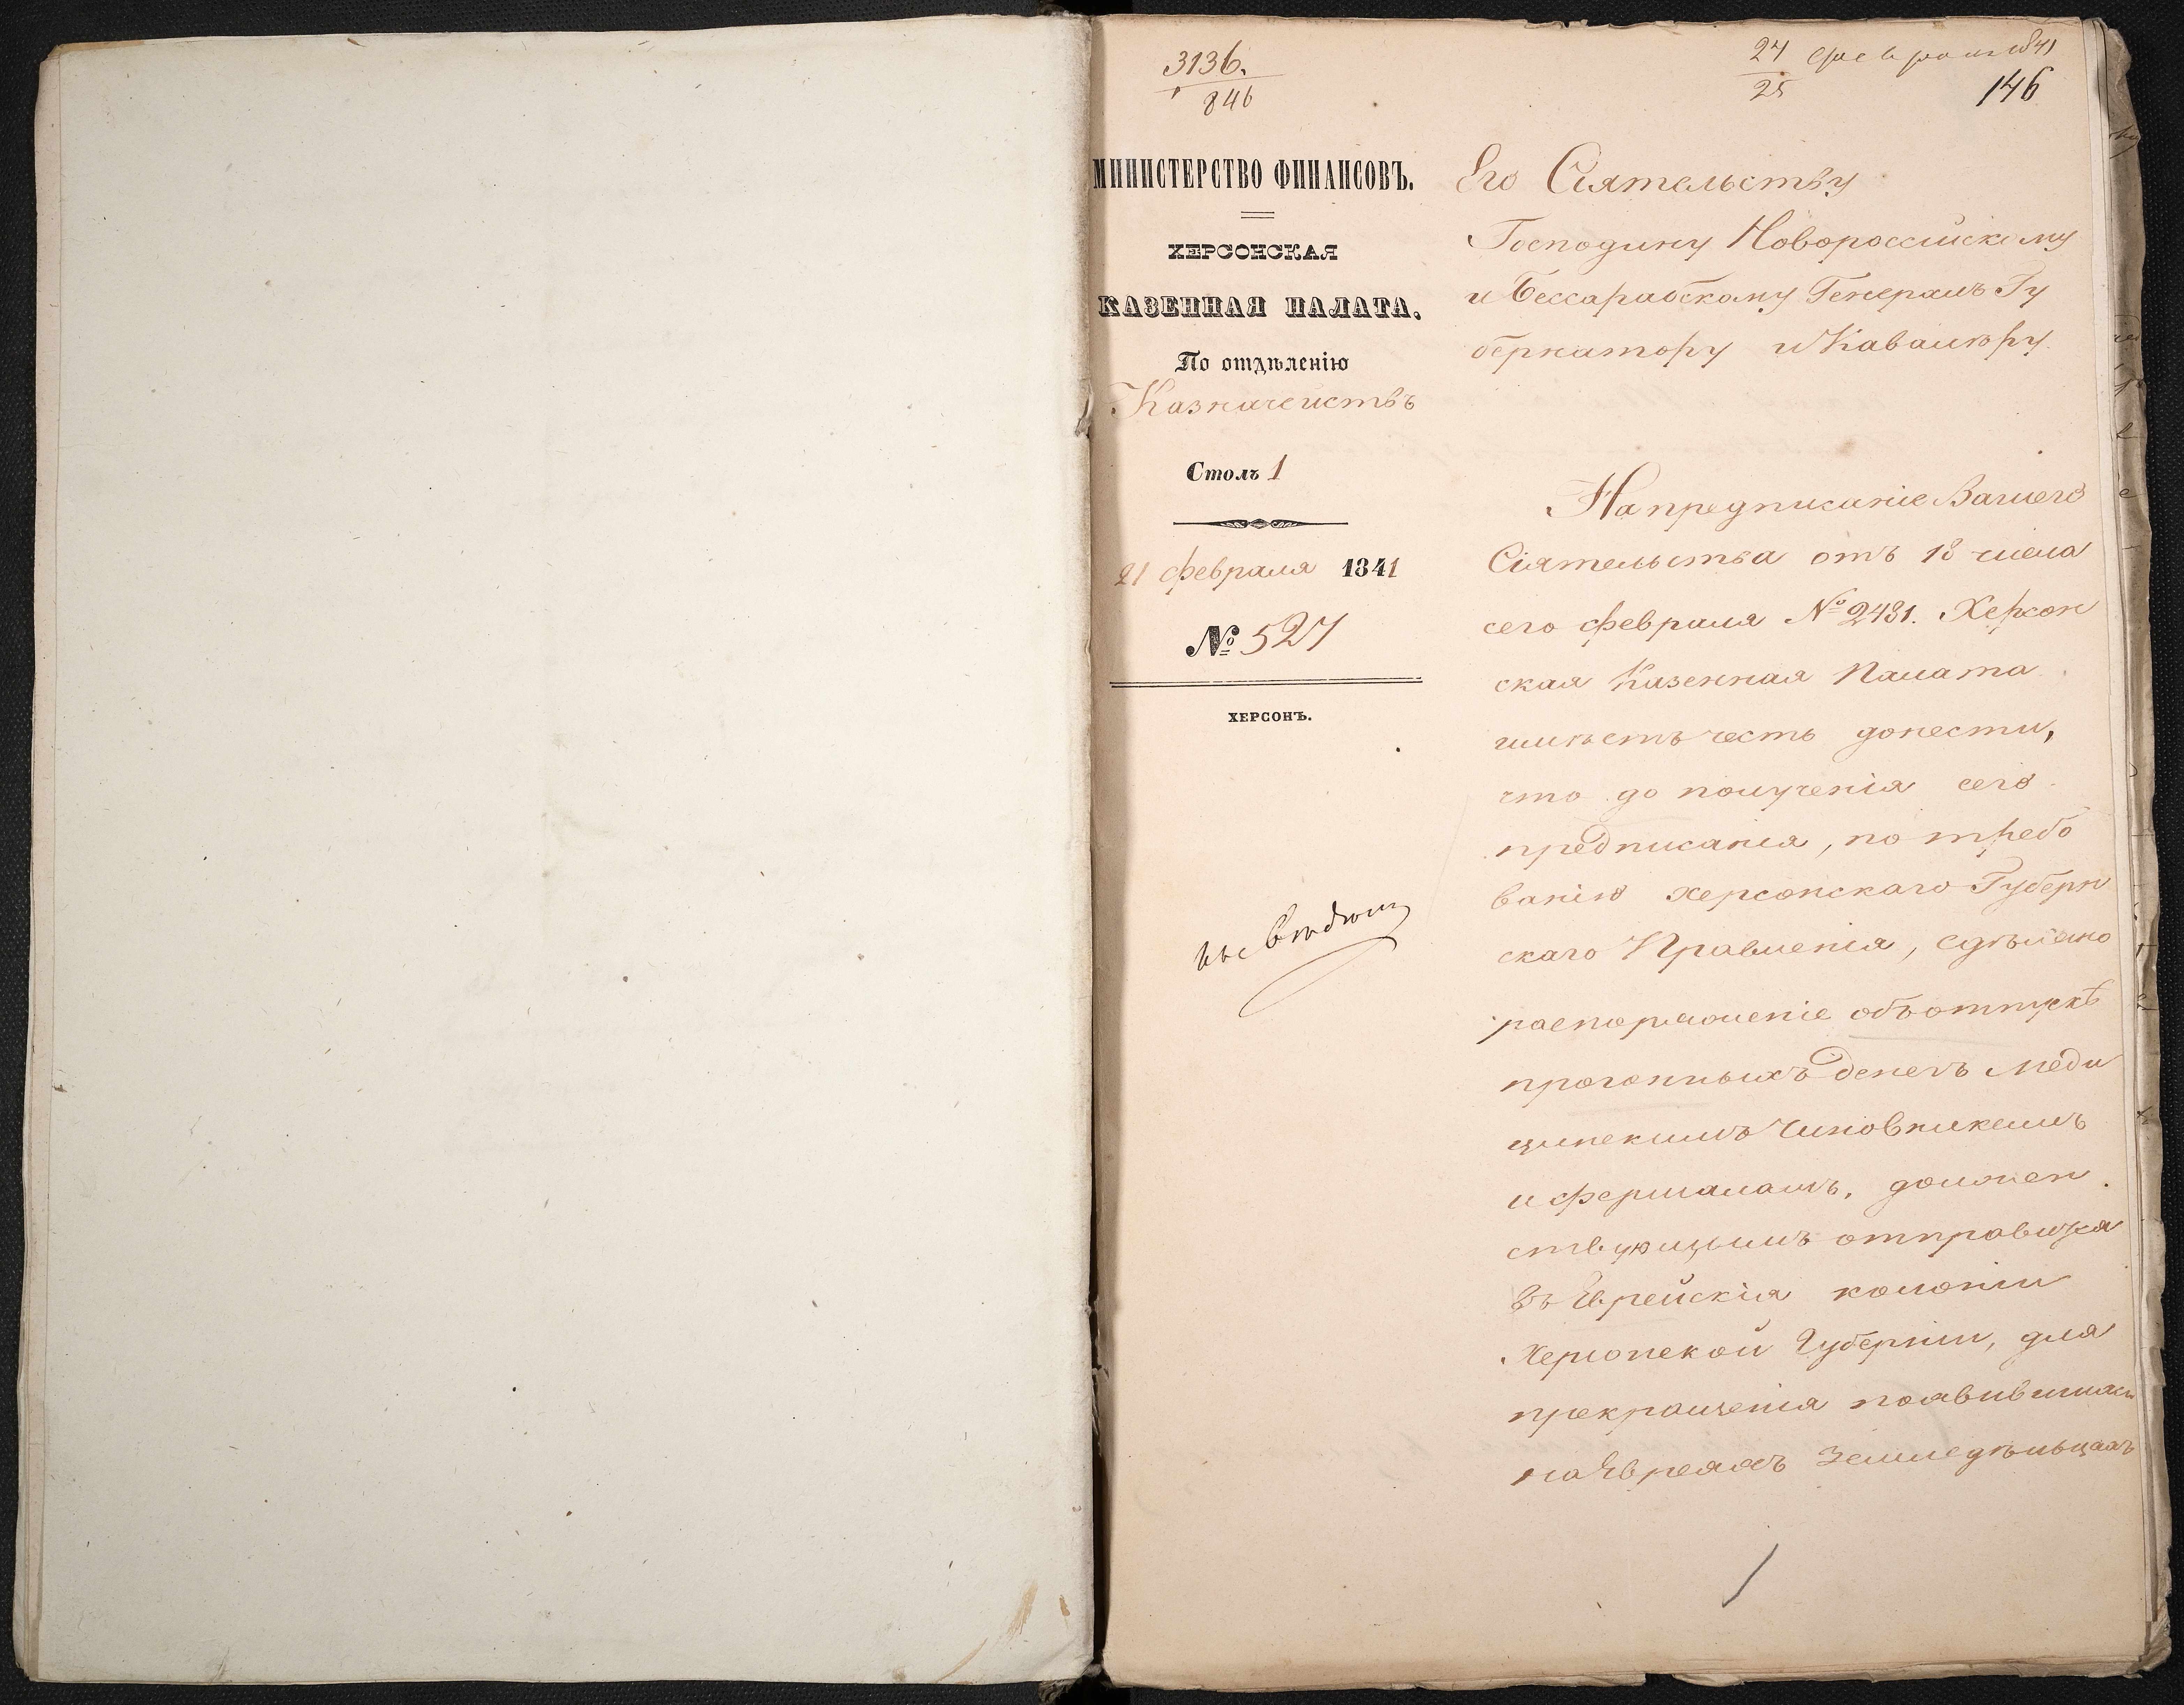 3136.
846
24 февраля 1841
25
146
МИНИСТЕРСТВО ФИНАНСОВЪ.
ХЕРСОНСКАЯ
КАЗЕННАЯ ПАЛАТА.
По отдѣленію
Казначействъ
Столъ 1
21 февраля 1841
№ 527
ХЕРСОНЪ.
Его Сіятельству
Господину Новороссійскому
и Бессарабскому Генералъ Гу
бернатору и Кавалеру
На предписаніе Вашего
Сіятельства отъ 18 числа
сего февраля № 2481. Херсон
ская Казенная Палата
имѣетъ честь донести,
что до полученія сего
предписанія, по требо
ванію Херсонскаго Губерн
скаго Правленія, сдѣлано
распоряженіе объ отпускѣ
прогонныхъ денегъ Меди
цинскимъ Чиновникамъ
и фершаламъ, должен
ствующимъ отправится
въ Еврейскія колоніи
Херсонской Губерніи, для
прекращенія появившихся
на Евреяхъ Земледѣльцахъ